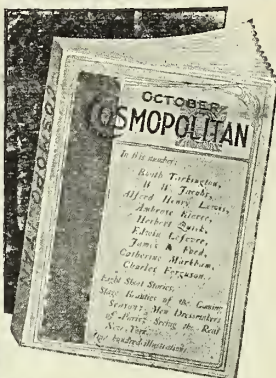 OCTOBER
COSMOPOLITAN
In this number:
Booth Tarkington,
W. W. Jacobs,
Alfred Henry Lewis,
Ambrose Bierce,
Herbert Quick,
Edwin Lefevre,
James L. Ford,
Catherine Markham,
Charles Ferguson.
Eight Short Stories,
Stage Beauties of the Coming
Season, Men Dressmakers
of Paris, Seeing the Real
New York.
One hundred illustrations.